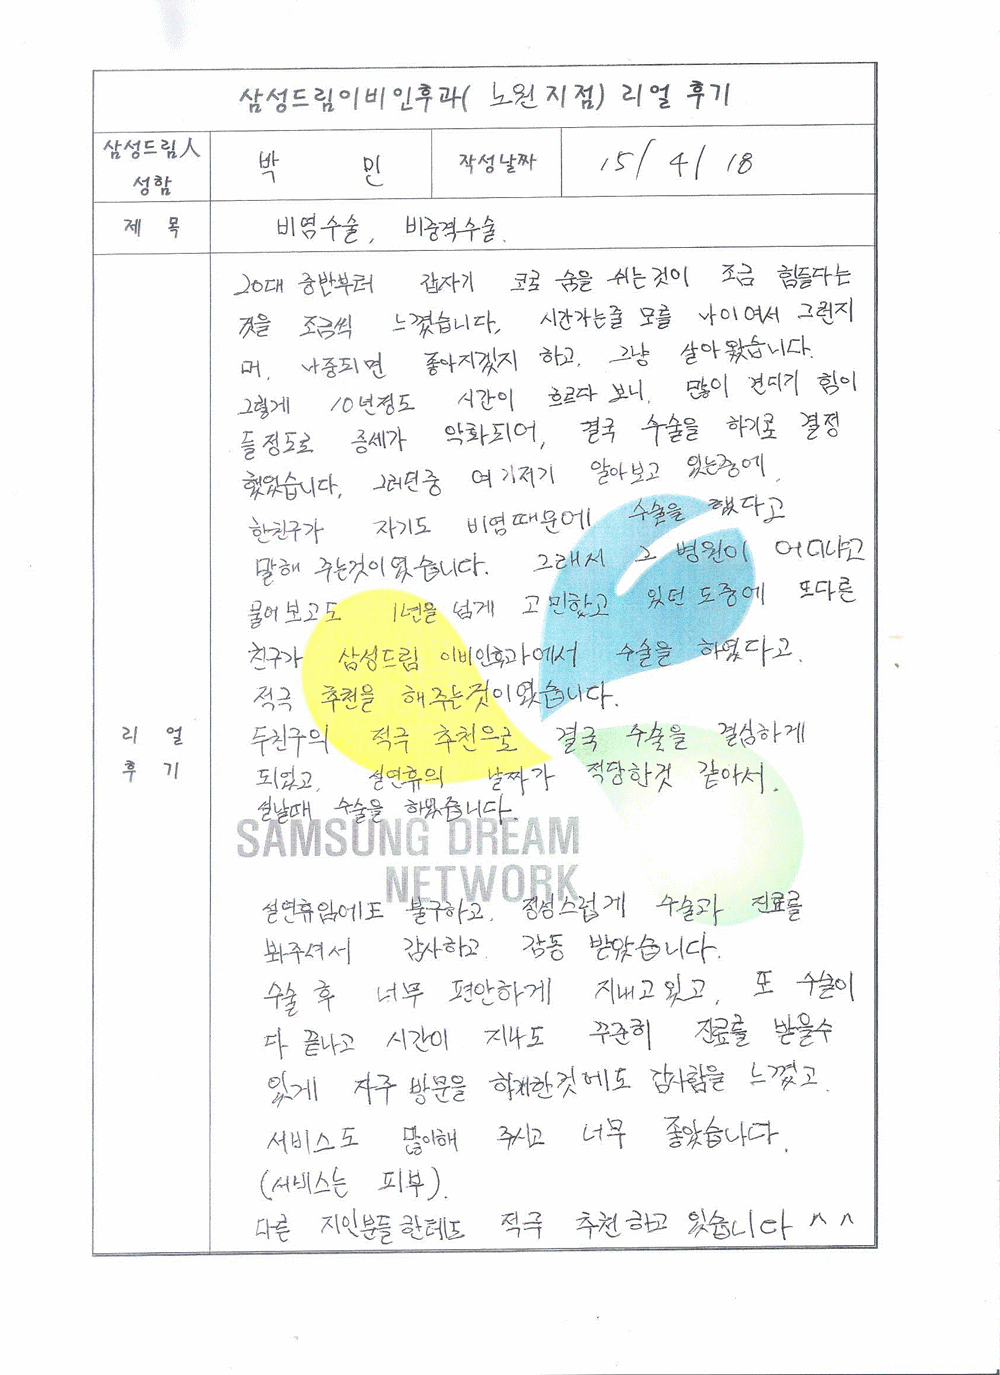 삼성드림이비인후과( 노원지점) 리얼 후기
삼성드림人 성함
박 민
작성날짜
15/ 4/ 18
제 목
비염수술, 비중격수술.
리 얼 후 기
20대 중반부터 갑자기 코로 숨을 쉬는것이 조금 힘들다는
것을 조금씩 느꼈습니다. 시간가는줄 모를 나이여서 그런지
머, 나중되면 좋아지겠지 하고, 그냥 살아왔습니다.
그렇게 10년정도 시간이 흐르다 보니, 많이 견디기 힘이
들정도로 증세가 악화되어, 결국 수술을 하기로 결정
했었습니다. 그러던중 여기저기 알아보고 있는중에,
한친구가 자기도 비염때문에 수술을 했다고
말해 주는것이였습니다. 그래서 그 병원이 어디냐고
물어보고도 1년을 넘게 고민했고 있던 도중에 또다른
친구가 삼성드림 이비인후과에서 수술을 하였다고.
적극 추천을 해주는것이였습니다.
두친구의 적극 추천으로 결국 수술을 결심하게
되었고, 설연휴의 날짜가 적당한것 같아서.
설날때 수술을 하였습니다.
SAMSUNG DREAM
NETWORK
설연휴임에도 불구하고, 정성스럽게 수술과 진료를
봐주셔서 감사하고, 감동 받았습니다.
수술 후 너무 편안하게 지내고있고, 또 수술이
다 끝나고 시간이 지나도 꾸준히 진료를 받을수
있게 자주 방문을 하게한것에도 감사함을 느꼈고.
서비스도 많이해 주시고 너무 좋았습니다.
(서비스는 피부).
다른 지인분들한테도 적극 추천하고 있습니다 ^ ^